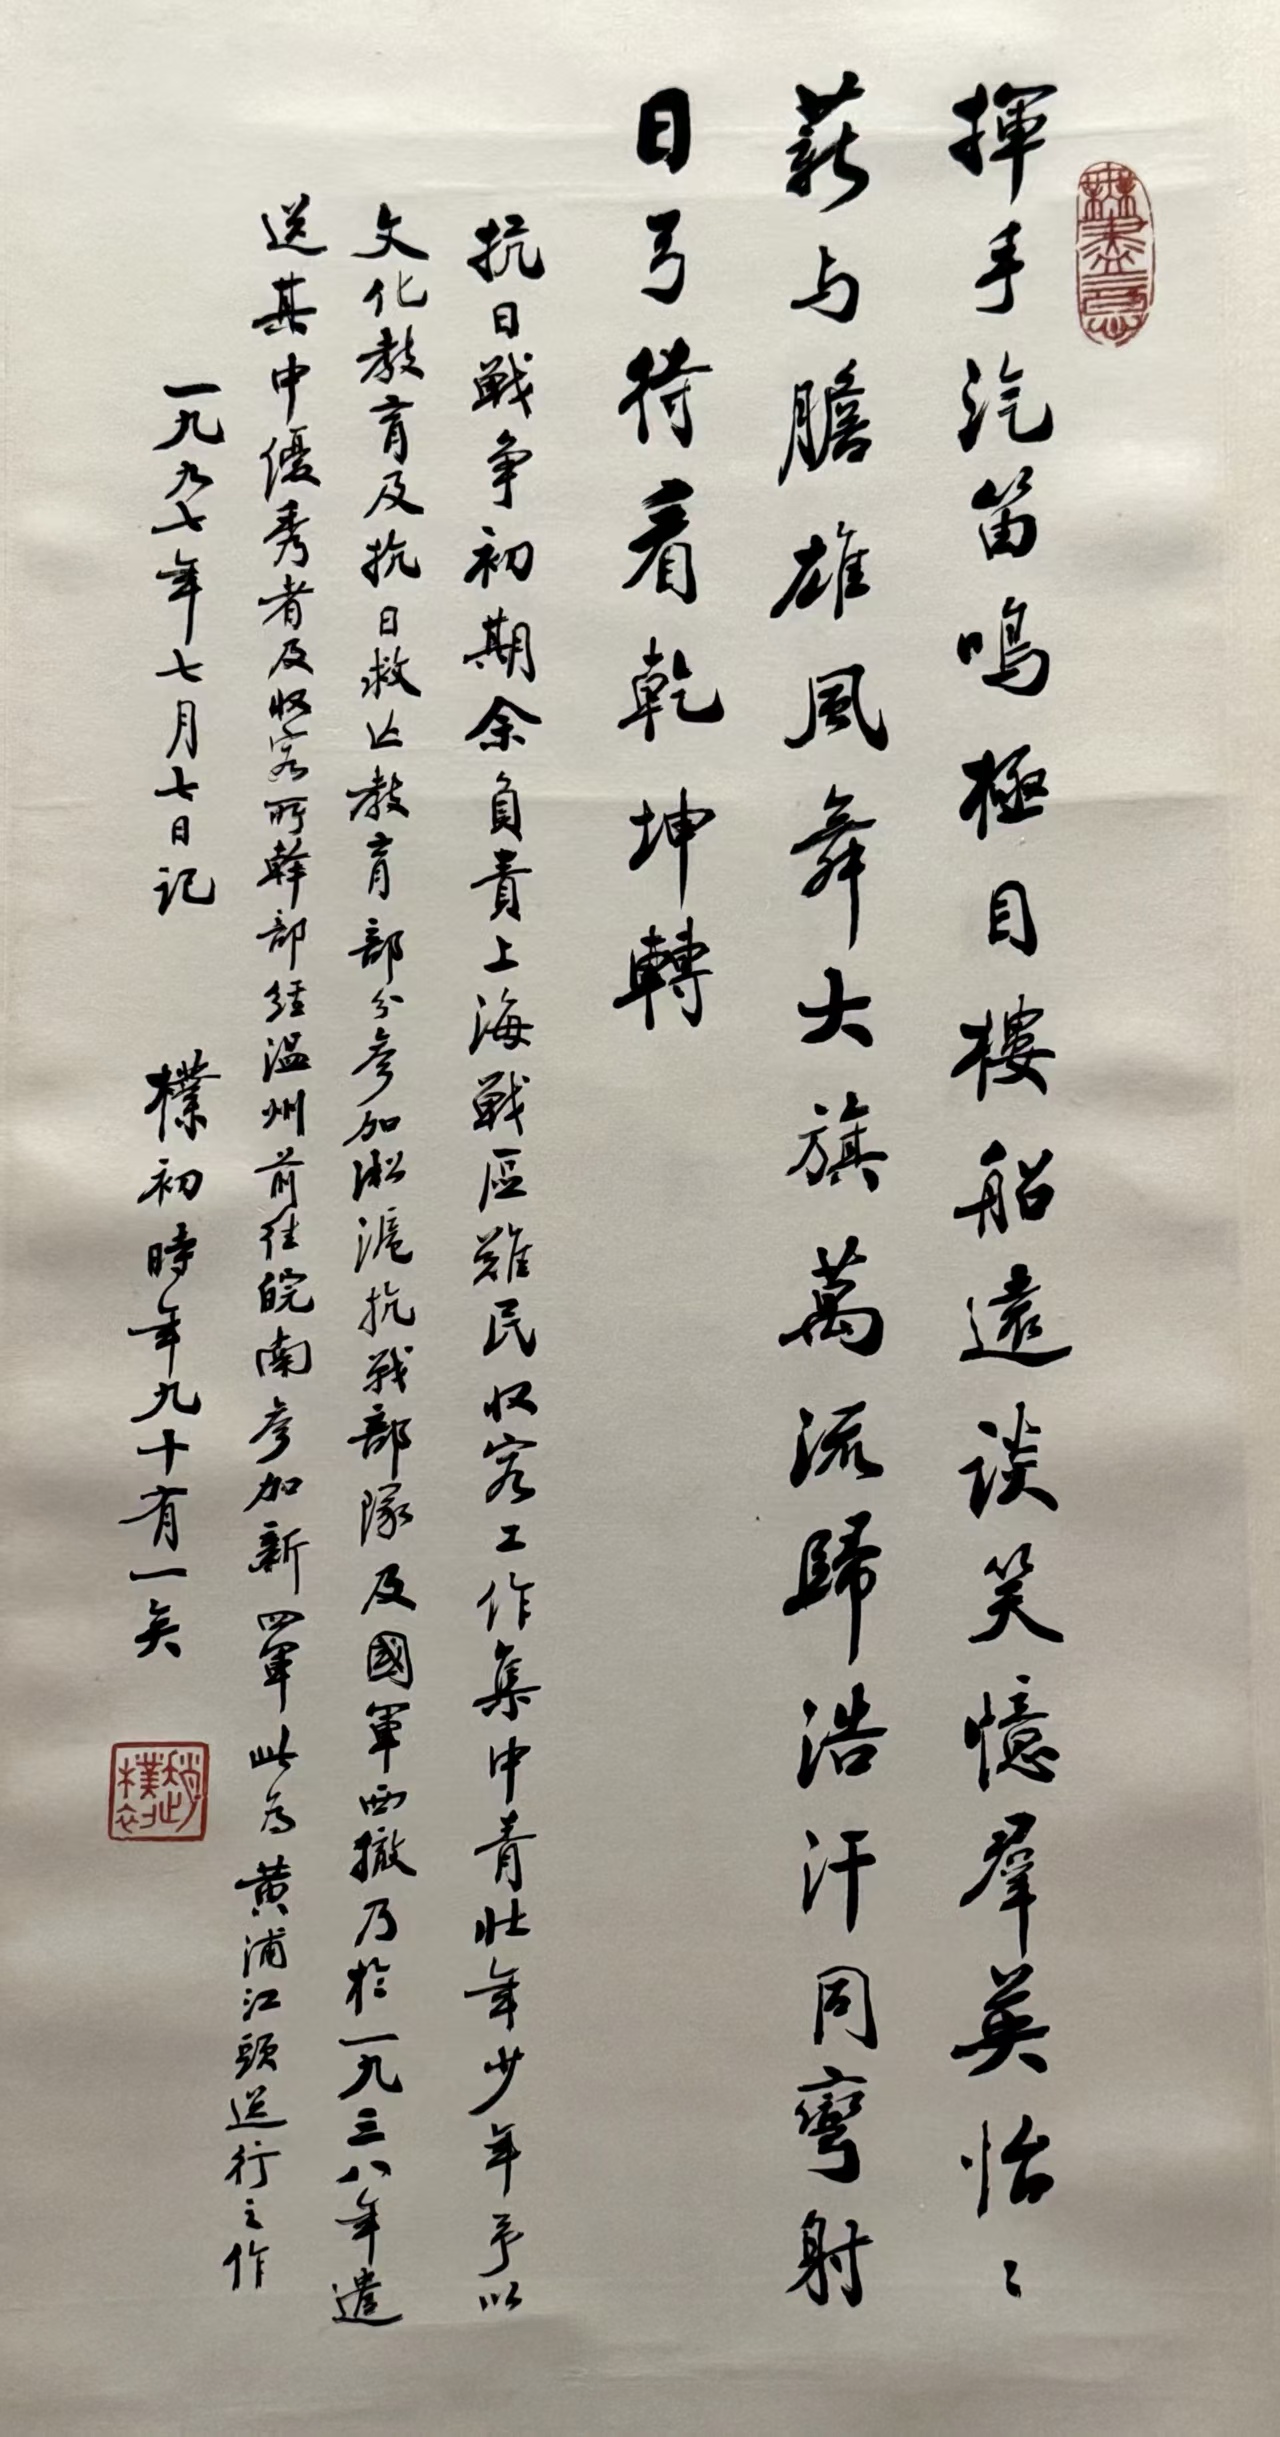 無盡意
揮手汽笛鳴極目樓船遠談笑憶羣英怡〻
薪与膽雄風舞大旗萬流歸浩汗同彎射
日弓待看乾坤轉
抗日戦争初期余負責上海戦區難民収容工作集中青壯年少年予以
文化教育及抗日救亡教育部分参加淞滬抗戦部隊及國軍西撤乃於一九三八年遣
送其中優秀者及収容所幹部經温州前往皖南参加新四軍此為黄浦江頭送行之作
一九九七年七月七日記 樸初時年九十有一矣
趙樸初